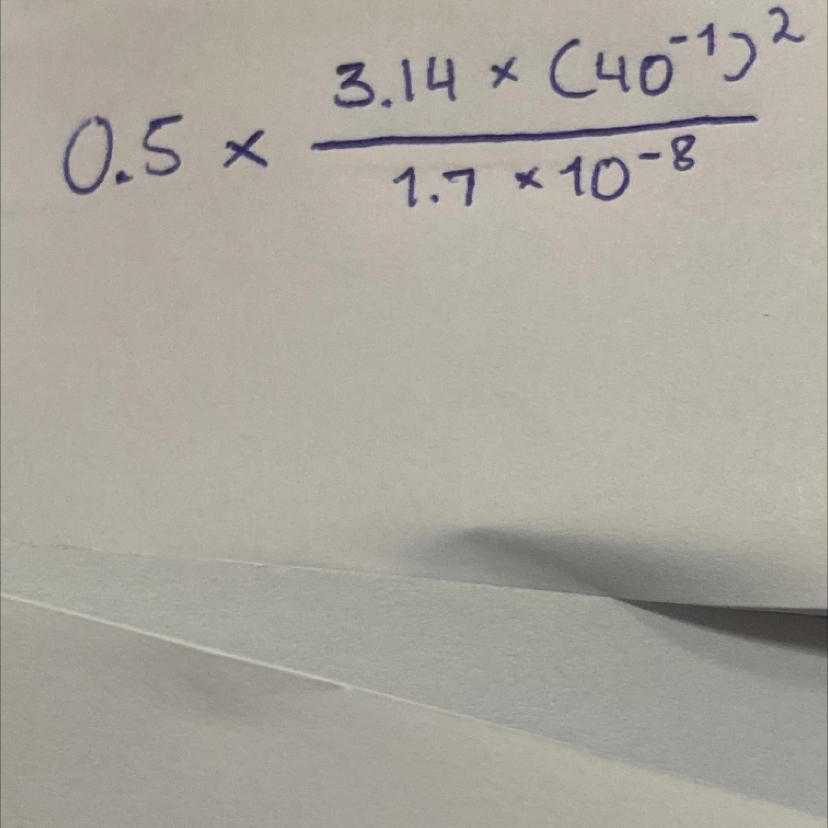 0.5 × \frac{3.14 × (40^{-1})^2}{1.7 × 10^{-8}}